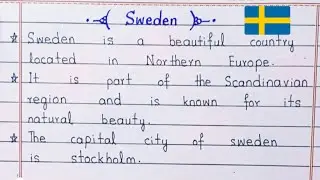 Sweden
Sweden is a beautiful country
located in Northern Europe.
It is part of the Scandinavian
region and is known for its
natural beauty.
The capital city of sweden
is stockholm.